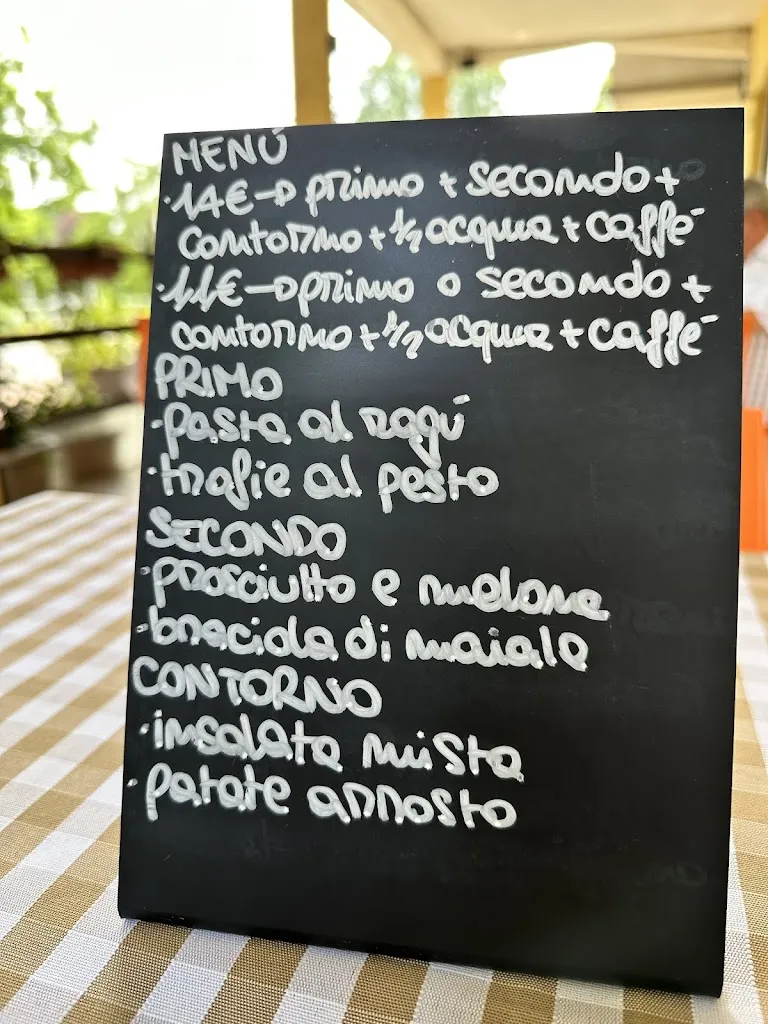 MENÚ
·14€→ primo + secondo +
contorno + 1/2 acqua + caffé
·11€→ primo o secondo +
contorno + 1/2 acqua + caffé
PRIMO
·pasta al ragú
·trofie al pesto
SECONDO
·prosciutto e melone
·braciola di maiale
CONTORNO
·insalata mista
·patate arrosto